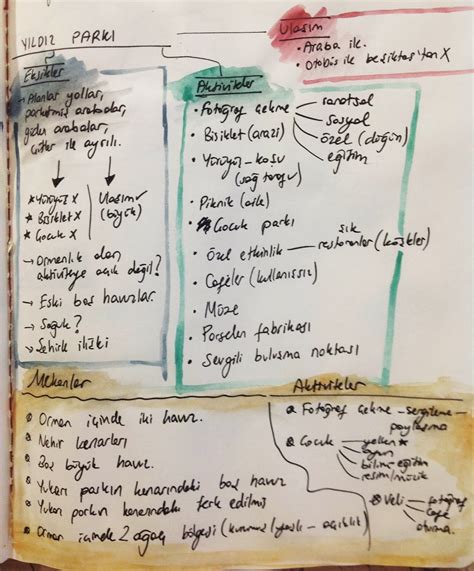 YILDIZ PARKI
Ulaşım
• Araba ile.
• Otobüs ile beşiktaş'tan X
Eksikler
- Alanlar yollar,
parketmiş arabalar,
giden arabalar,
çitler ile ayrılı.
* Yürüyüş X
* Bisiklet X
* Çocuk X
Ulaşım ✓
(büyük)
→ Ormanlık alan
aktiviteye açık değil?
→ Eski boş havuzlar.
→ Soğuk?
→ Şehirle ilişki
Aktiviteler
• Fotoğraf çekme
sanatsal
sosyal
özel (düğün)
eğitim
• Bisiklet (arazi)
• Yürüyüş - koşu
(sağ)
• Piknik (aile)
• Çocuk parkı
• Özel etkinlik
şık
restoranlar (köşkler)
• Cafeler (kullanışsız)
• Müze
• Porselen fabrikası
• Sevgili buluşma noktası
Mekanlar
Orman içinde iki havuz.
Nehir kenarları
Boş büyük havuz.
Yukarı parkın kenarındaki boş havuz
Yukarı parkın kenarındaki terk edilmiş
Orman içinde 2 ağaç bölgesi
Aktiviteler
Fotoğraf çekme - sergileme -
paylaşma
Çocuk
yelken *
oyun
bilim-eğitim
resim/müzik
Veli
fotoğraf
café
oturma.